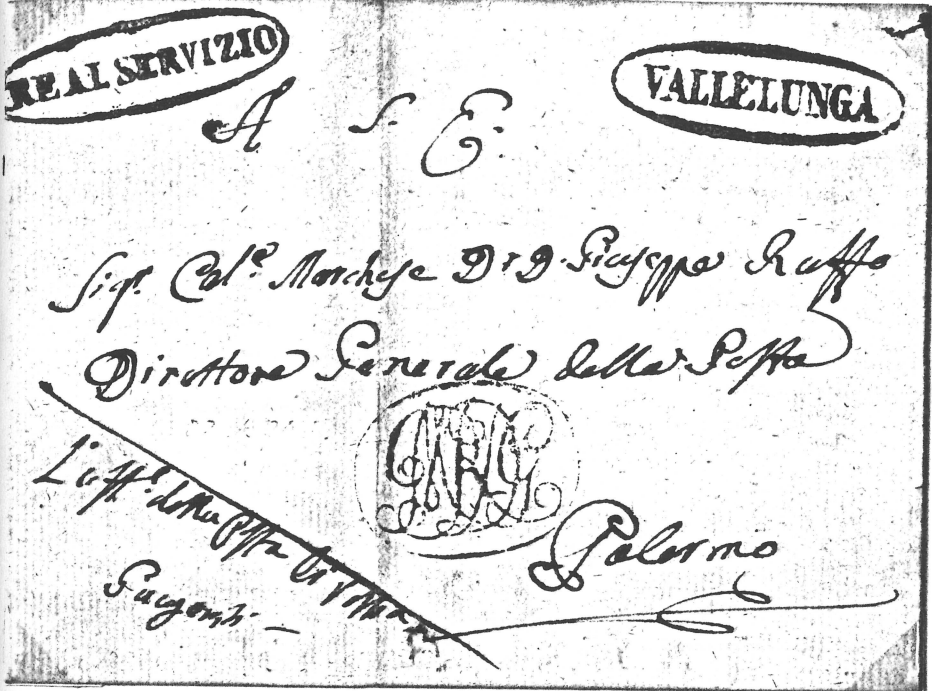 REAL SERVIZIO
VALLELUNGA
A S. E.
Sigr. Colo. Marchese Dr D. Giuseppe Ruffo
Direttore Generale della Posta
L'uffo. della Posta di
Palermo